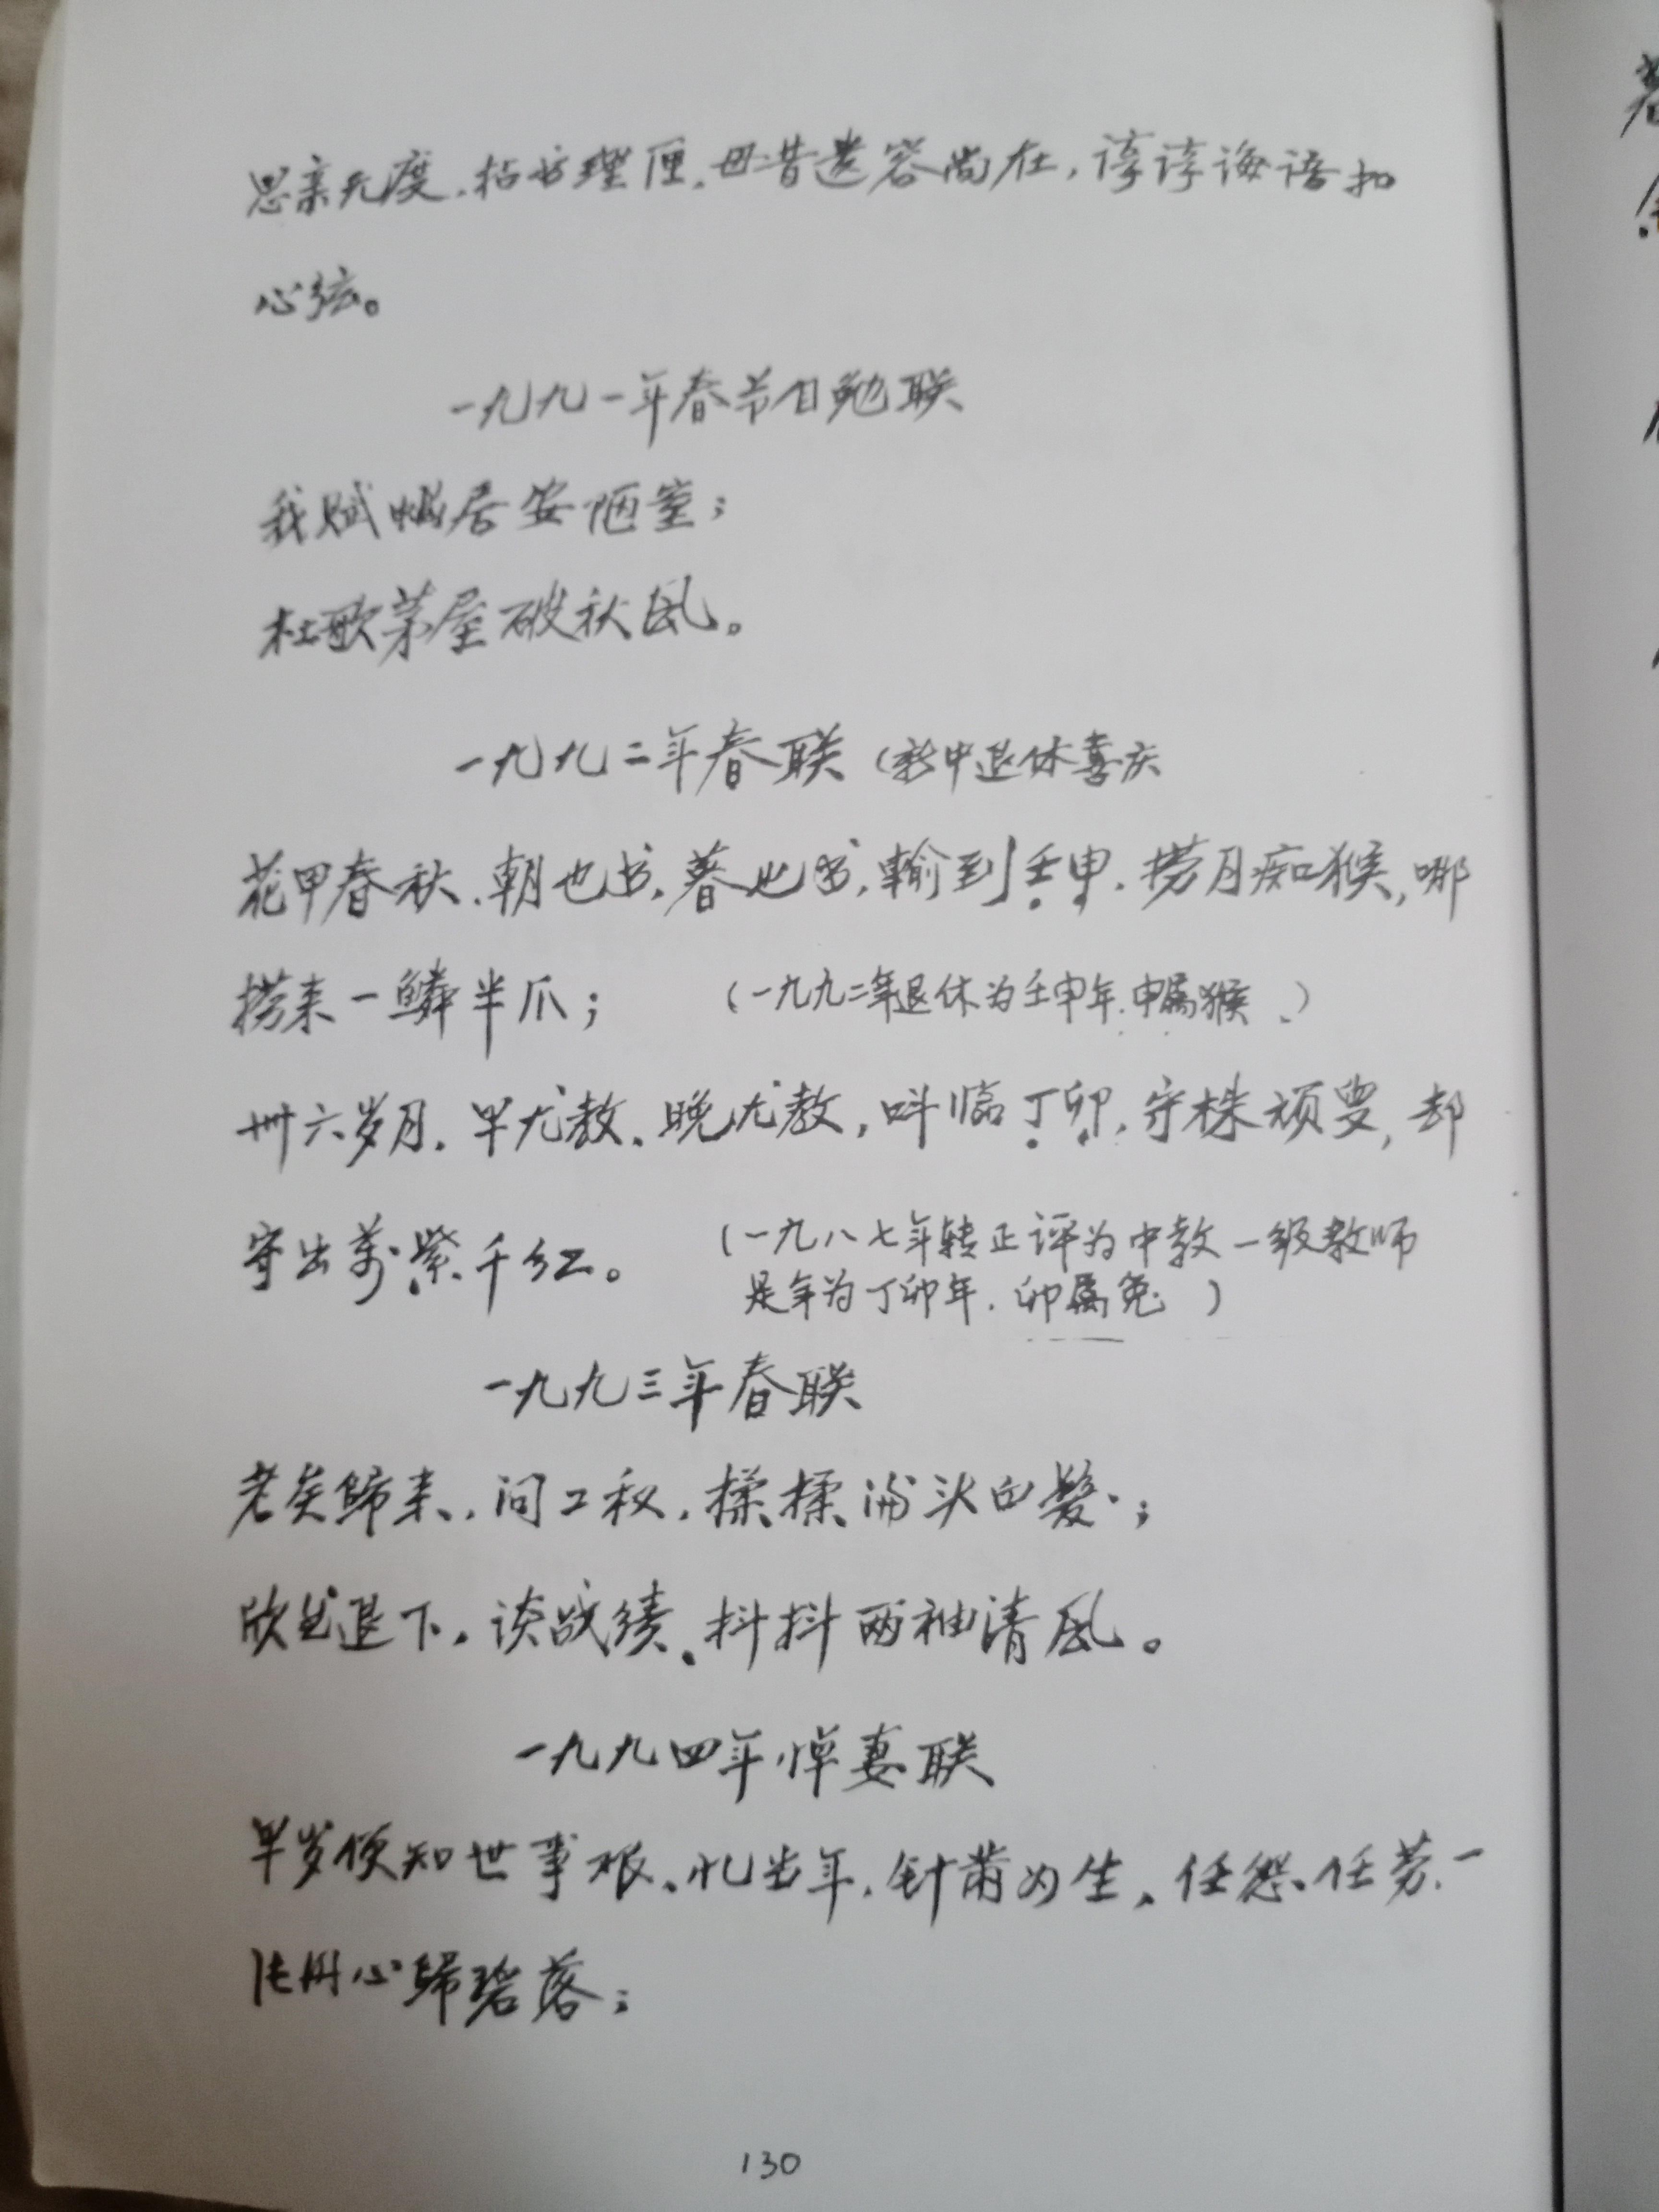 思亲无度，拈书理匣，毋昔遗容尚在，谆谆诲语扣
心弦。
一九九一年春节自勉联
我赋蜗居安陋室；
杜歌茅屋破秋风。
一九九二年春联（新中退休喜庆
花甲春秋，朝也书，暮也书，输到壬申，捞月痴猴，哪
捞来一鳞半爪；（一九九二年退休为壬申年，申属猴）
卅六岁月，早尤教，晚尤教，时临丁卯，守株顽叟，却
守出万紫千红。（一九八七年转正评为中教一级教师
是年为丁卯年，卯属兔）
一九九三年春联
老矣歸来，问工秋，揉揉满头白发；
欣然退下，谈战绩，抖抖两袖清风。
一九九四年悼妻联
早岁便知世事艰，忆当年，针黹为生，任怨、任劳，一
心歸碧落；
130